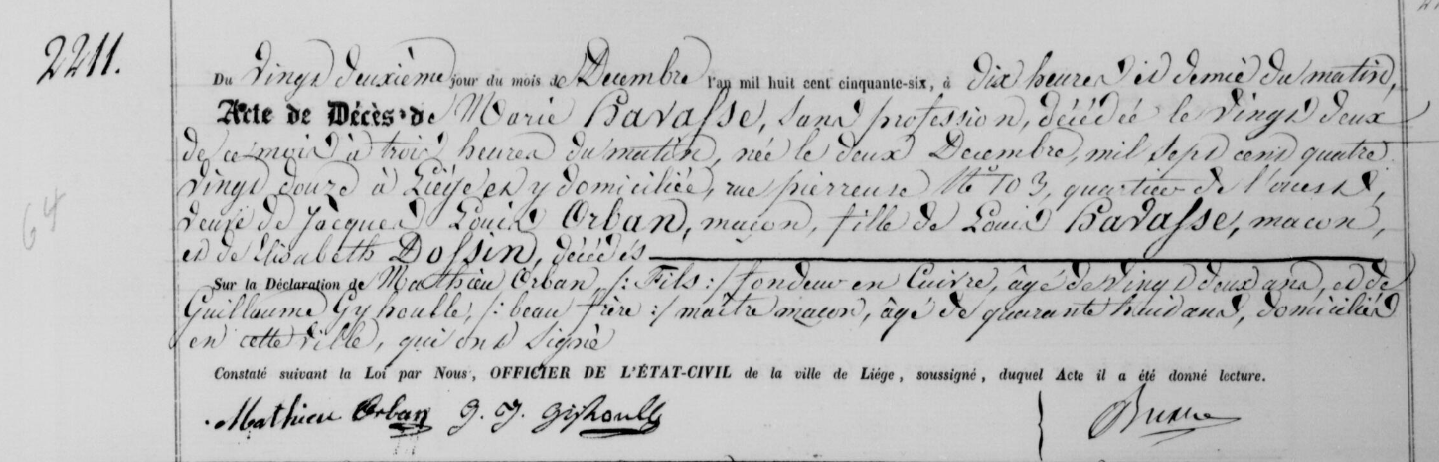 2211.
Du vingt deuxième jour du mois de Decembre l'an mil huit cent cinquante-six, à dix heures et demie du matin,
Acte de Décès de Marie Havasse, sans profession, décédée le vingt deux
de ce mois à trois heures du matin, née le deux Decembre, mil sept cent quatre
vingt douze à Liége et y domiciliée, rue pierreuse N° 103, quartier de l'ouest,
veuve de Jacques Louis Orban, maçon, fille de Louis Havasse, maçon,
et de Elisabeth Dossin, décédés
64
Sur la Déclaration de Mathieu Orban, /: Fils :/ fondeur en Cuivre, âgé de vingt deux ans, et de
Guillaume Gyhoulle, /: beau frère :/ maître maçon, âgé de quarante huit ans, domiciliés
en cette ville, qui ont signé
Constaté suivant la Loi par Nous, OFFICIER DE L'ÉTAT-CIVIL de la ville de Liége, soussigné, duquel Acte il a été donné lecture.
Mathieu Orban G. J.